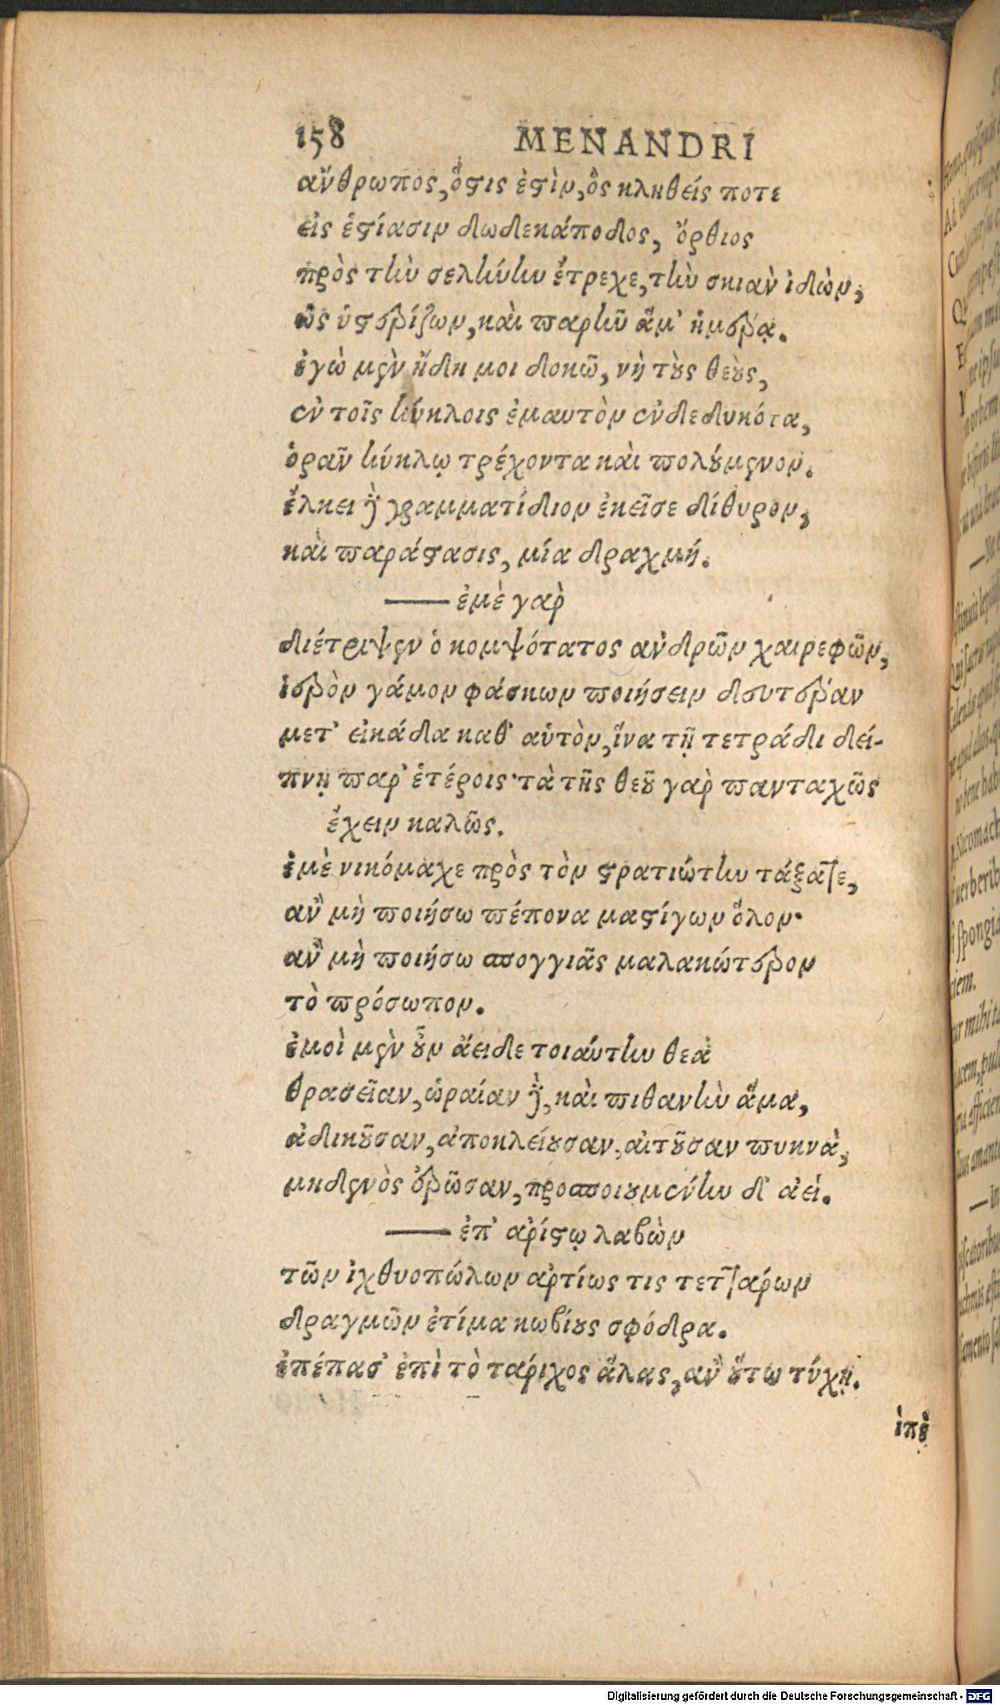 158 MENANDRI
ἄνθρωπος, ὅστις ἐστὶν, ὃς κληθείς ποτε
εἰς ἑστίασιν δωδεκάποδος, ὄρθιος
πρὸς τὴν σελήνην ἔτρεχε, τὴν σκιὰν ἰδὼν,
ὡς ὑστερίζων, καὶ παρῆν ἅμ' ἡμέρᾳ.
ἐγὼ μὲν ἤδη μοι δοκῶ, νὴ τοὺς θεοὺς,
ἐν τοῖς κύκλοις ἐμαυτὸν ἐνδεδυκότα,
ὁρᾶν κύκλῳ τρέχοντα καὶ πολούμενον.
ἕλκει δὲ γραμματίδιον ἐκεῖσε δίθυρον,
καὶ παράστασις, μία δραχμή.
—— ἐμὲ γὰρ
διέτριψεν ὁ κομψότατος ἀνδρῶν χαιρεφῶν,
ἱερὸν γάμον φάσκων ποιήσειν δευτέραν
μετ' εἰκάδα καθ' αὑτὸν, ἵνα τῇ τετράδι δεί-
πνῃ παρ' ἑτέροις· τὰ τῆς θεοῦ γὰρ πανταχῶς
ἔχειν καλῶς.
ἐμὲ νικόμαχε πρὸς τὸν στρατιώτην τάξατε,
ἂν μὴ ποιήσω πέπονα μαστίγων ὅλον·
ἂν μὴ ποιήσω σπογγιᾶς μαλακώτερον
τὸ πρόσωπον.
ἐμοὶ μὲν οὖν ἄειδε τοιαύτην θεὰ
θρασεῖαν, ὡραίαν δὲ, καὶ πιθανὴν ἅμα,
ἀδικοῦσαν, ἀποκλείουσαν, αἰτοῦσαν πυκνὰ,
μηδενὸς ἐρῶσαν, προσποιουμένην δ' ἀεί.
—— ἐπ' ἀρίστῳ λαβὼν
τῶν ἰχθυοπώλων ἀρτίως τις τεττάρων
δραγμῶν ἐτίμα κωβίους σφόδρα.
ἐπέπασ' ἐπὶ τὸ τάριχος ἅλας, ἂν οὕτω τύχῃ.
ἱπὲ
Digitalisierung gefördert durch die Deutsche Forschungsgemeinschaft - DFG